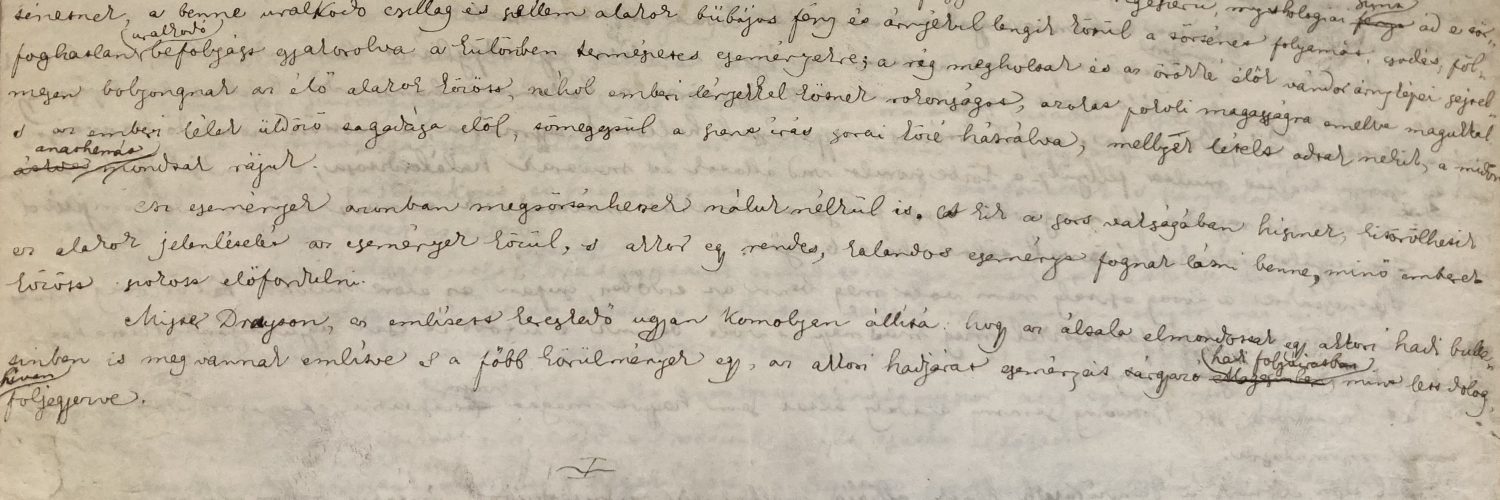 szint
regeszerü, mythologiai ád e tör-
ténetnek, a benne uralkodo csillag és szellem alakok bübájos fény és árnyékul lengik körül a történet folyamát, csodás, föl-
uralkodó
foghatlan befolyást gyakorolva a különben természetes eseményekre; a rég megholtak és az örökké élők vándor árnyképei sejtel-
mesen bolyongnak az élő alakok között, néhol emberi lényekkel kötnek rokonságot, azokat pokoli magasságra emelve magukkal
s az emberi lélek üldöző tagadása elől, tömegesül a szent irás sorai közé hátrálva, mellyek létele adtak nekik, a midőn
anathemát
átkot mondtak rájuk.
Ez események azonban megtörténhettek náluk nélkül is. A kik a sors vakságában hisznek, kitörölhetik
ez alakok jelenlétele az események közül, s akkor egy rendes, kalandos eseményt fognak látni benne, minő emberek
között sokszor előfordulni.
Mister Drayson, az emlitett kereskedő ugyan komolyan állitá: hogy az általa elmondottak egy akkori hadi bulle-
tinben is megvannak emlitve s a főbb körülmények egy, az akkori hadjárat eseményeit tárgyazo mint lett dolog,
hadi folyóiratban
hiven
följegyezve.